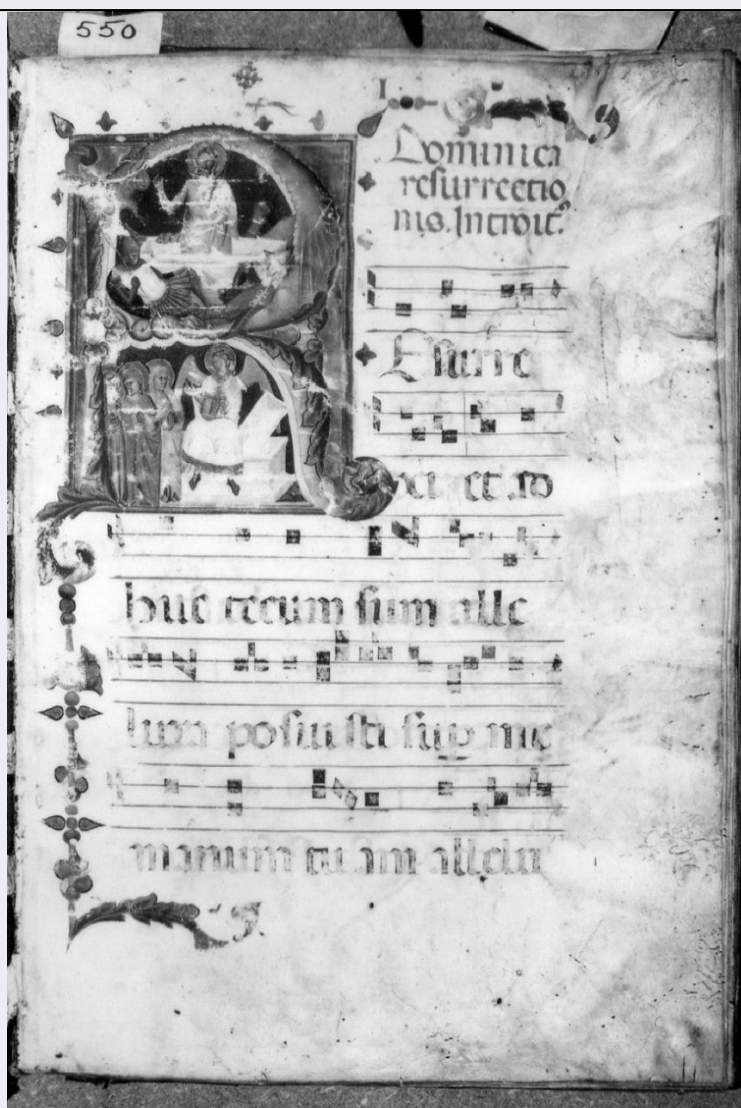 550
I
Dominica
resurrectio
nis. Introit⁹.
Esurre
xi et ad
huc tecum sum alle
luya posui sti sup me
manum tu am allelu